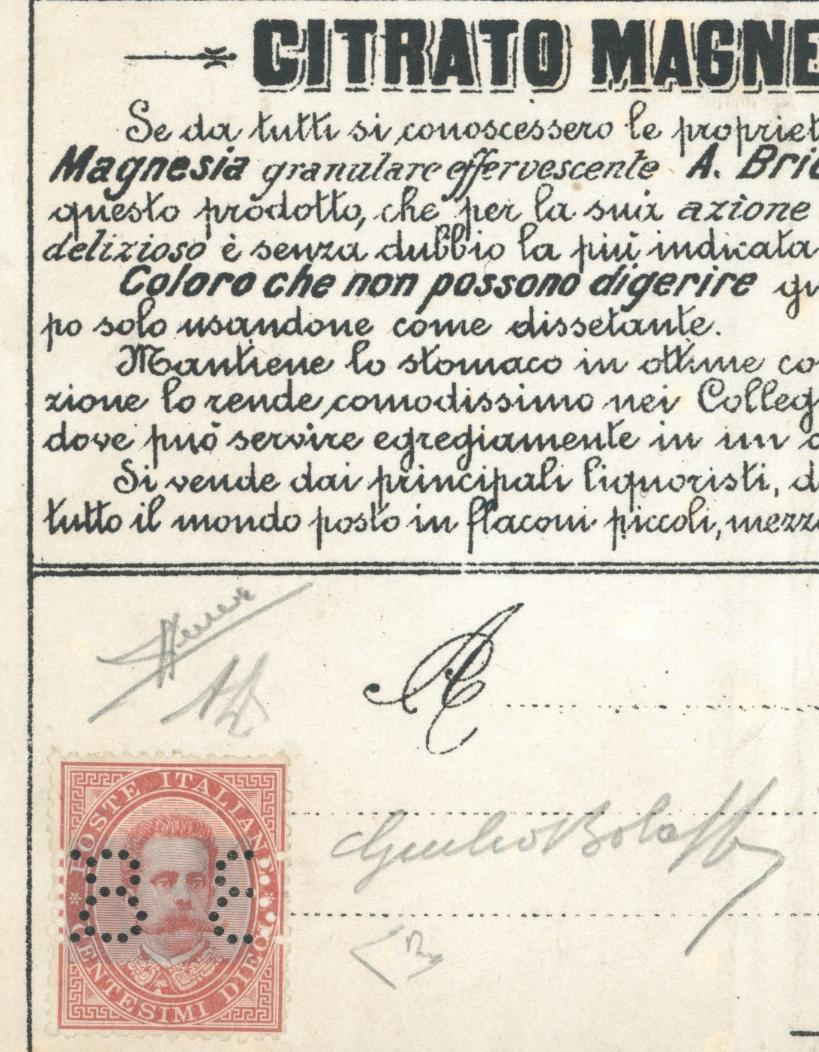 CITRATO MAGNE
Se da tutti si conoscessero le propriet
Magnesia granulare effervescente A. Bri
questo prodotto, che per la sua azione
delizioso è senza dubbio la più indicata
Coloro che non possono digerire qu
po solo usandone come dissetante.
Mantiene lo stomaco in ottime co
zione lo rende comodissimo nei Colleg
dove può servire egregiamente in un c
Si vende dai principali liquoristi, d
tutto il mondo posto in flaconi piccoli, mezz
A
Giulio Bolaffi
POSTE ITALIANE
CENTESIMI DIECI
B